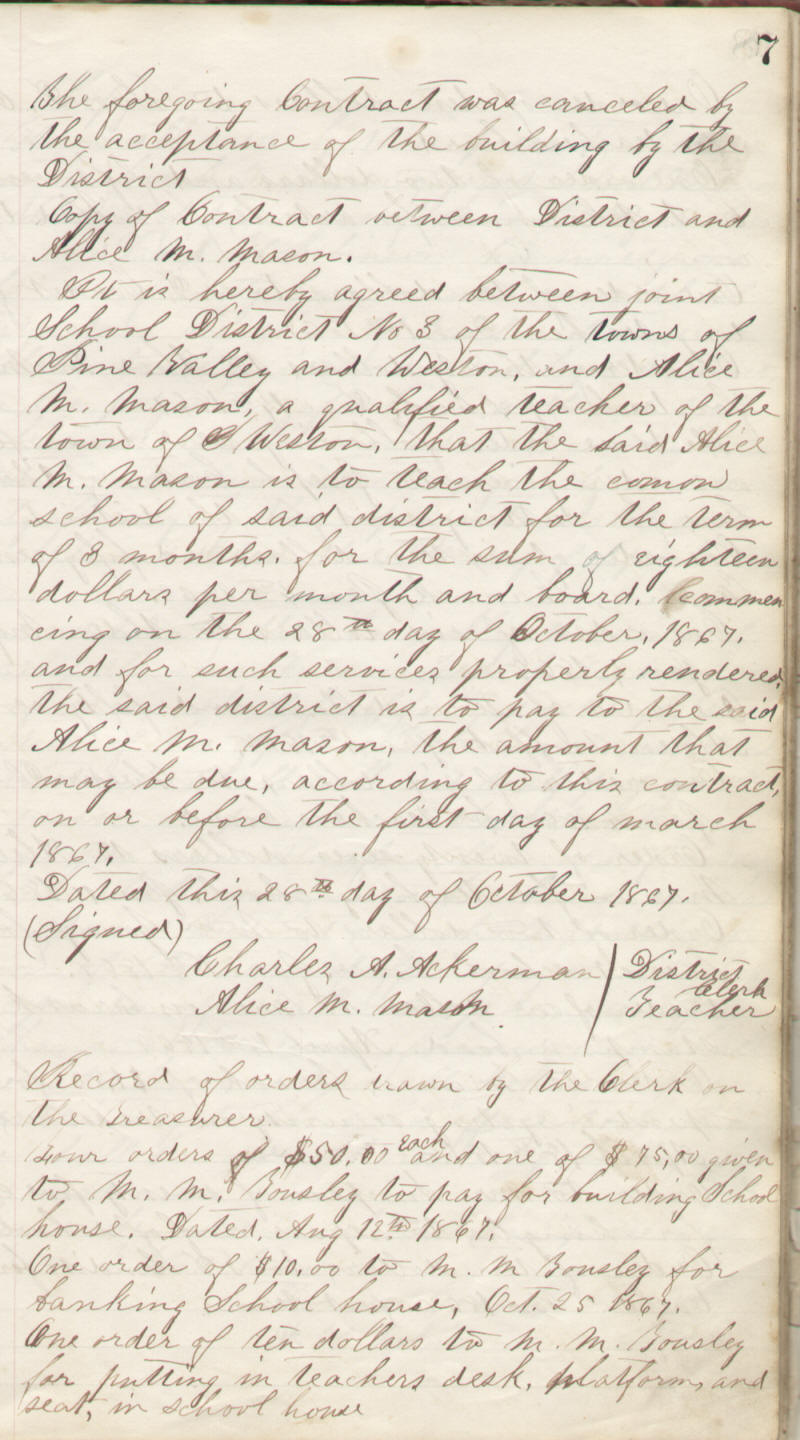 7
The foregoing Contract was canceled by
the acceptance of the building by the
District
Copy of Contract between District and
Alice M. Mason.
It is hereby agreed between joint
School District No 3 of the towns of
Pine Valley and Weston, and Alice
M. Mason, a qualified teacher of the
town of Weston, that the said Alice
M. Mason is to teach the comon
school of said district for the term
of 3 months. for the sum of eighteen
dollars per month and board. Commen
cing on the 28th day of October, 1867.
and for such services properly rendered,
the said district is to pay to the said
Alice M. Mason, the amount that
may be due, according to this contract,
on or before the first day of march
1867.
Dated this 28th day of October 1867.
(Signed)
Charles A. Ackerman District Clerk
Alice M. Mason Teacher
Record of orders drawn by the Clerk on
the Treasurer
Four orders of $50.00 each and one of $75,00 given
to M. M. Bousley to pay for building School
house. Dated. Aug 12th 1867.
One order of $10.00 to M. M Bousley for
banking School house, Oct. 25 1867.
One order of ten dollars to M. M. Bousley
for putting in teachers desk, platform, and
seat, in school house